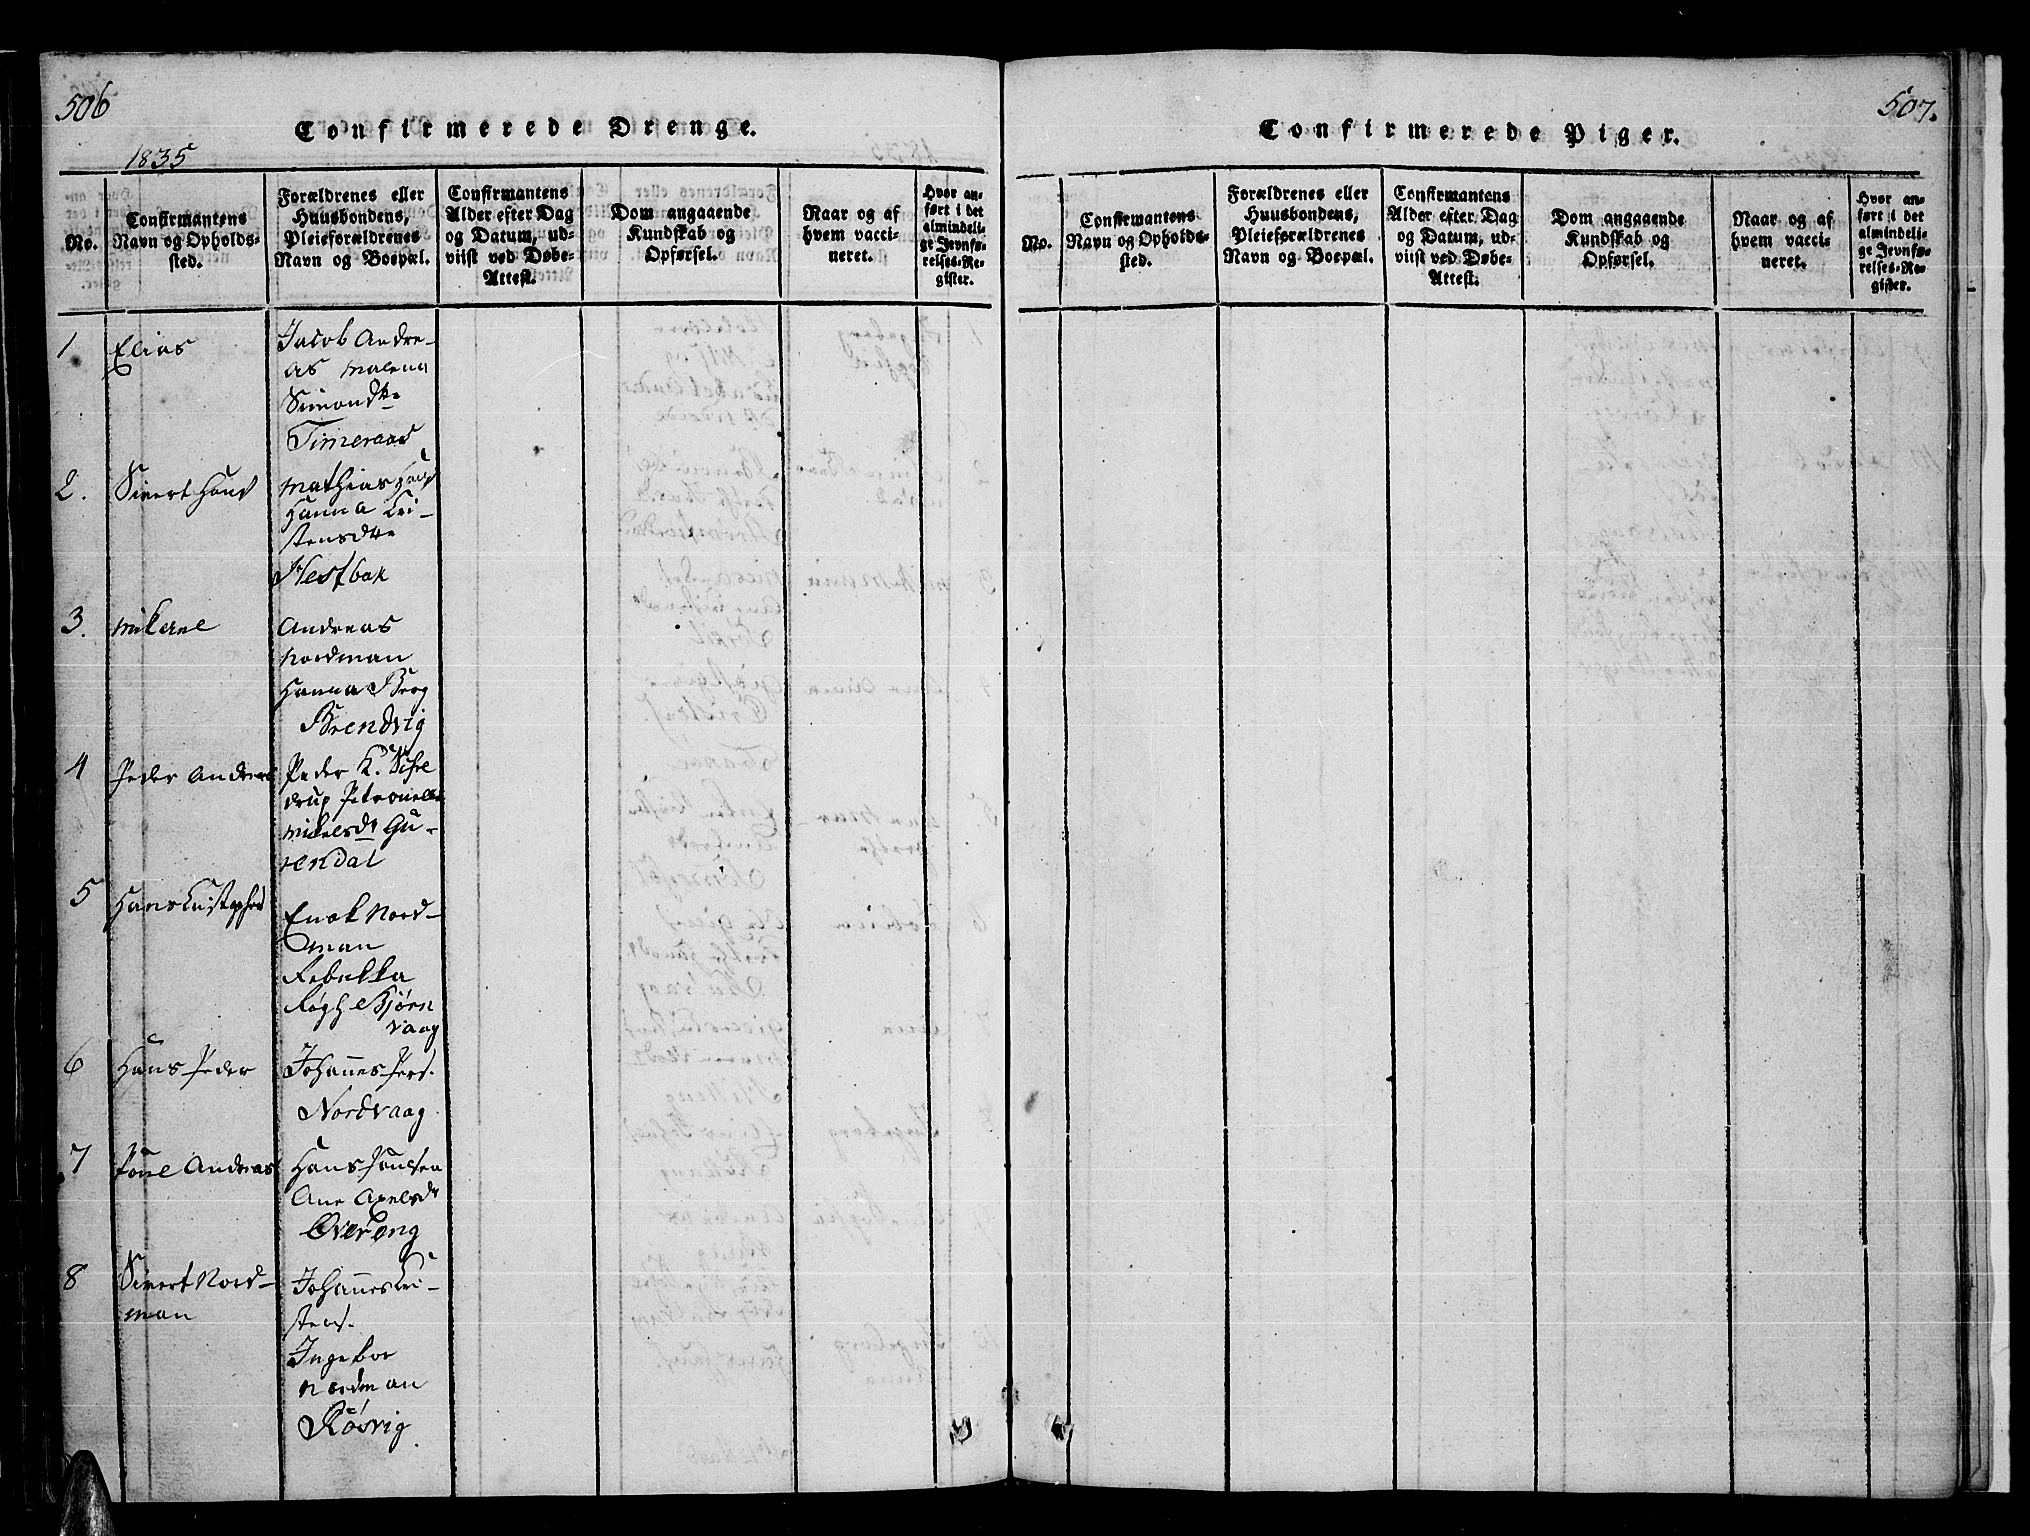 506
Confirmerede Drenge.
1835
No.
Confirmantens
Navn og Opholds-
sted.
Forældrenes eller
Huusbondens,
Pleieforældrenes
Navn og Boepæl.
Confirmantens
Alder efter Dag
og Datum, ud-
viist ved Døbe-
Attest.
Dom angaaende
Kundskab og
Opførsel.
Naar og af
hvem vacci-
neret.
Hvor an-
ført i det
almindeli-
ge Jevnfø-
relses-Re-
gister.
1
Elias
Jacob Andre-
as Malena
Simonds
Timeraas
2.
Sivert Hans
Mathias
Hanna Cri-
stensdtr
Hestbak
3.
Mikael
Andreas
Nordman
Hanna Berg
Brendvig
4
Peder Andreas
Peder K. Schel
drup Petronelle
Mikelsdr Gu-
rendal
5
Hans Cristopher
Enok Nord-
man
Rebekka
Bjørn
vaag
6
Hans Peder
Johannes Pers.
Nordvaag
7
Poul Andreas
Hans Poulsen
Ane Axelsdr
Overeng
8
Sivert Nord-
man
Johannes Cri-
stens.
Ingebor
Nordman
Røsvig
507.
Confirmerede Piger.
No.
Confirmantens
Navn og Opholds-
sted.
Forældrenes eller
Huusbondens,
Pleieforældrenes
Navn og Boepæl.
Confirmantens
Alder efter Dag
og Datum, ud-
viist ved Døbe-
Attest.
Dom angaaende
Kundskab og
Opførsel.
Naar og af
hvem vacci-
neret.
Hvor an-
ført i det
almindeli-
ge Jevnfø-
relses-Re-
gister.